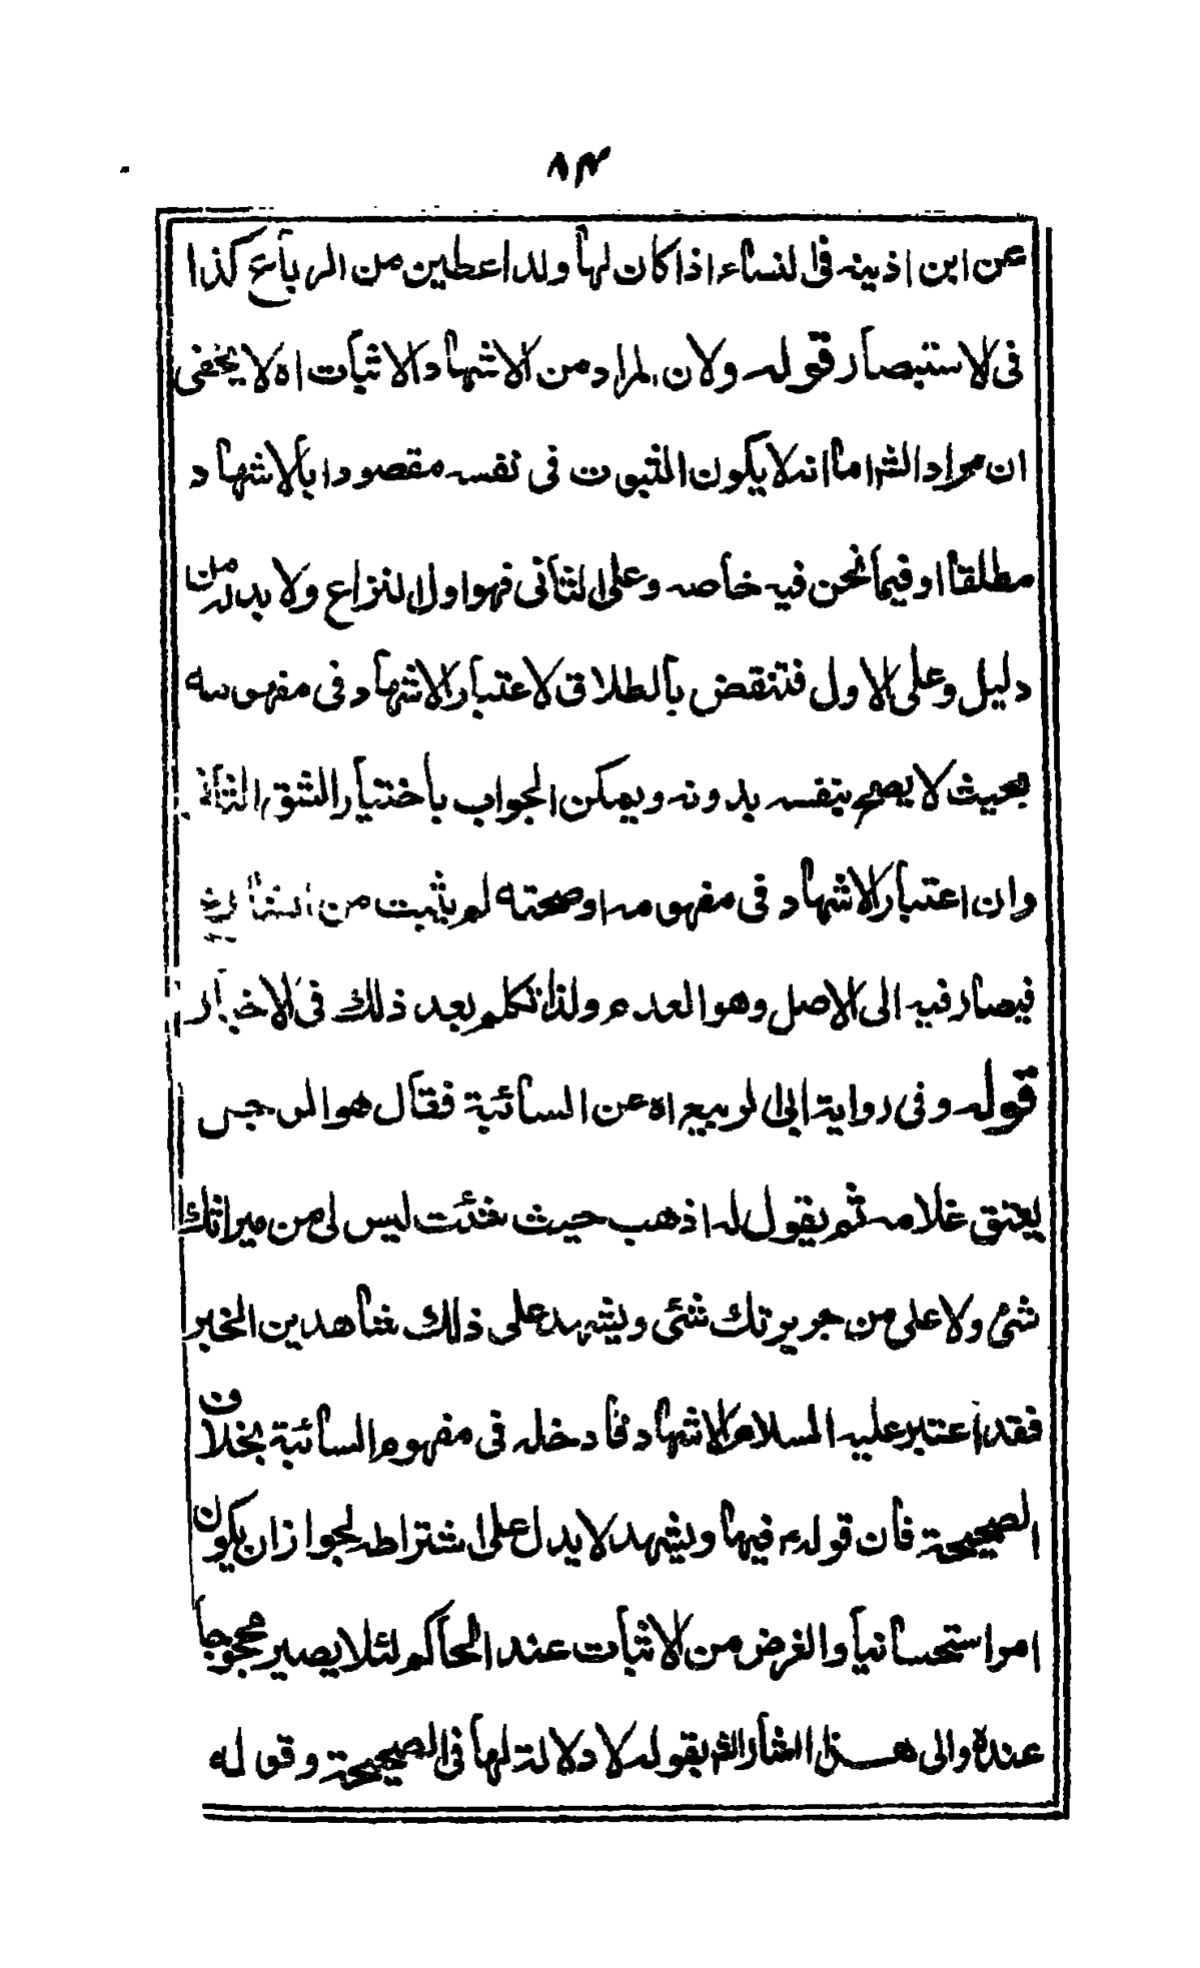 ٨٣
عن ابن اذينه فى النساء اذا كان لها ولد اعطين من الرباع كذا
فى الاستبصار قوله ولان المراد من الاشهاد الاثبات اه لا يخفى
ان مراد الشر اما انه لا يكون الثبوت فى نفسه مقصودا بالاشهاد
مطلقا او فيما نحن فيه خاصه وعلى الثانى فهو اول النزاع ولا بد له من
دليل وعلى الاول فتنقض بالطلاق لاعتبار الاشهاد فى مفهومه
بحيث لا يصح بنفسه بدونه ويمكن الجواب باختيار الشق الثانى
وان اعتبار الاشهاد فى مفهومه او صحته لم يثبت من الشارع
فيصار فيه الى الاصل وهو العدم ولذا تكلم بعد ذلك فى الاخبار
قوله وفى رواية ابى الربيع اه عن السائبة فقال هو الرجس
يعتق غلامه ثم يقول له اذهب حيث شئت ليس لى من ميراثك
شئ ولا على من جريرتك شئ ويشهد على ذلك شاهدين الخبر
فقد اعتبر عليه السلام الاشهاد فادخله فى مفهوم السائبة بخلاف
الصحيحة فان قوله ع فيها ويشهد لا يدل على اشتراطه لجواز ان يكون
امرا استحسانيا والغرض من الاثبات عند الحاكم لئلا يصير محجوجا
عنده والى هذا اشار الشر بقوله لا دلالة لها فى الصحيحة وقوله